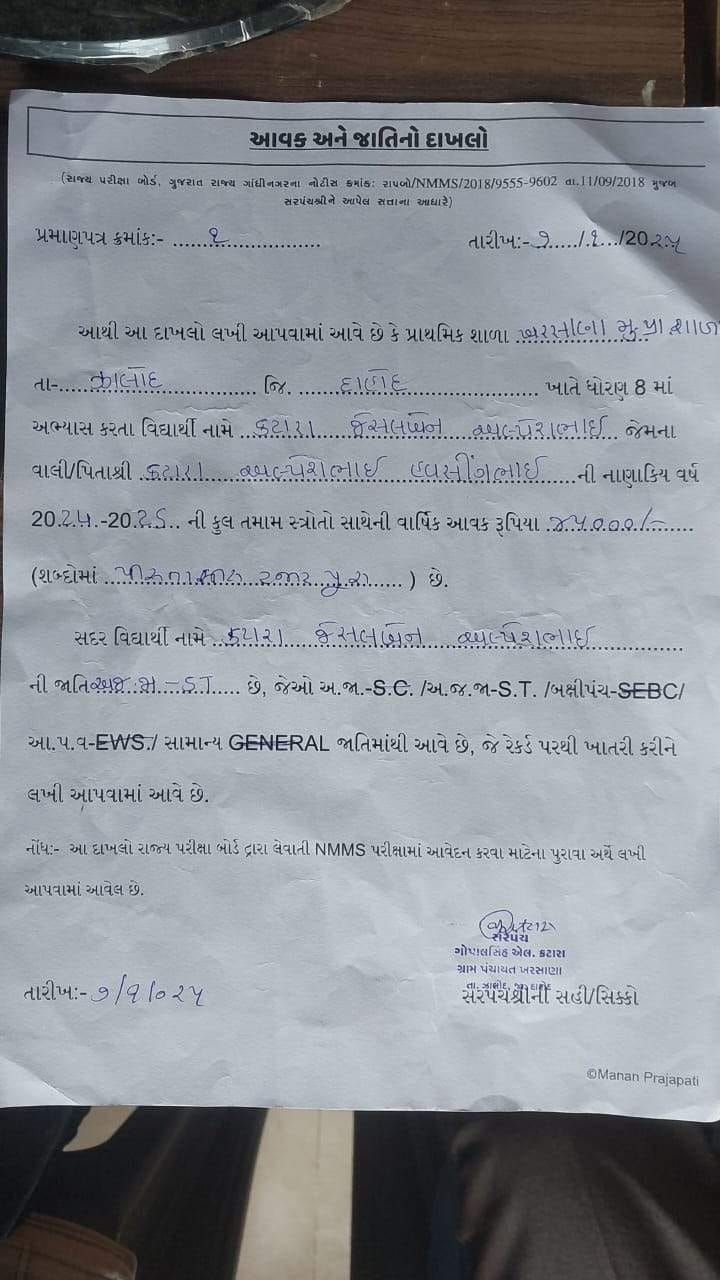 આવક અને જાતિનો દાખલો
(રાજ્ય પરીક્ષા બોર્ડ, ગુજરાત રાજ્ય ગાંધીનગરના નોટીસ ક્રમાંક: રાપબો/NMMS/2018/9555-9602 તા.11/09/2018 મુજબ
સરપંચશ્રીને આપેલ સત્તાના આધારે)
પ્રમાણપત્ર ક્રમાંક:- ....૧.... તારીખ:- ૭/૧/20૨૫
આથી આ દાખલો લખી આપવામાં આવે છે કે પ્રાથમિક શાળા ખરસાણા મુ.પ્રા શાળા
તા-....ઝાલોદ.... જિ. ....દાહોદ.... ખાતે ધોરણ 8 માં
અભ્યાસ કરતા વિદ્યાર્થી નામે કટારા જેસલબેન અલ્પેશભાઈ જેમના
વાલી/પિતાશ્રી કટારા અલ્પેશભાઈ હવસીંગભાઈ ની નાણાકિય વર્ષ
20૨૫-20૨૬ ની કુલ તમામ સ્ત્રોતો સાથેની વાર્ષિક આવક રૂપિયા ૪૫૦૦૦/-
(શબ્દોમાં પીસ્તાલીસ હજાર પુરા) છે.
સદર વિદ્યાર્થી નામે કટારા જેસલબેન અલ્પેશભાઈ
ની જાતિ અ.જ.જા-S.T છે, જેઓ અ.જા.-S.C. /અ.જ.જા-S.T. /બક્ષીપંચ-SEBC/
આ.પ.વ-EWS./ સામાન્ય GENERAL જાતિમાંથી આવે છે, જે રેકર્ડ પરથી ખાતરી કરીને
લખી આપવામાં આવે છે.
નોંધ:- આ દાખલો રાજ્ય પરીક્ષા બોર્ડ દ્વારા લેવાતી NMMS પરીક્ષામાં આવેદન કરવા માટેના પુરાવા અર્થે લખી
આપવામાં આવેલ છે.
સરપંચ
ગોપાલસિંહ એલ. કટારા
ગ્રામ પંચાયત ખરસાણા
તા. ઝાલોદ, જી. દાહોદ
તારીખ:- ૭/૧/૦૨૫ સરપંચશ્રીની સહી/સિક્કો
©Manan Prajapati